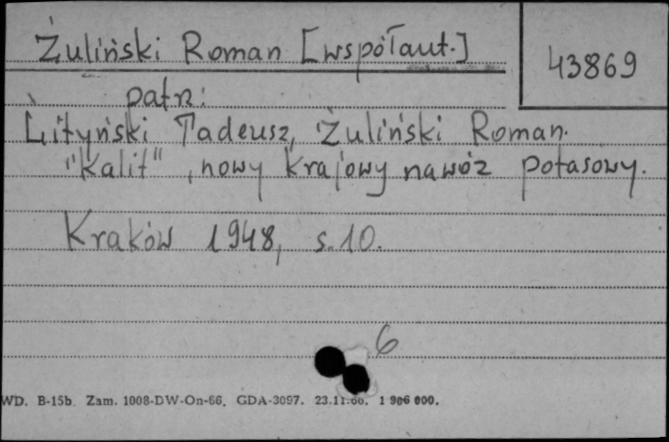 Żuliński Roman [współaut.]
43869
patrz:
Lityński Tadeusz, Żuliński Roman.
"Kalit", nowy krajowy nawóz potasowy.
Kraków 1948, s. 10.
6
WD. B-15b. Zam. 1008-DW-On-66. GDA-3097. 23.11.66. 1 906 000.